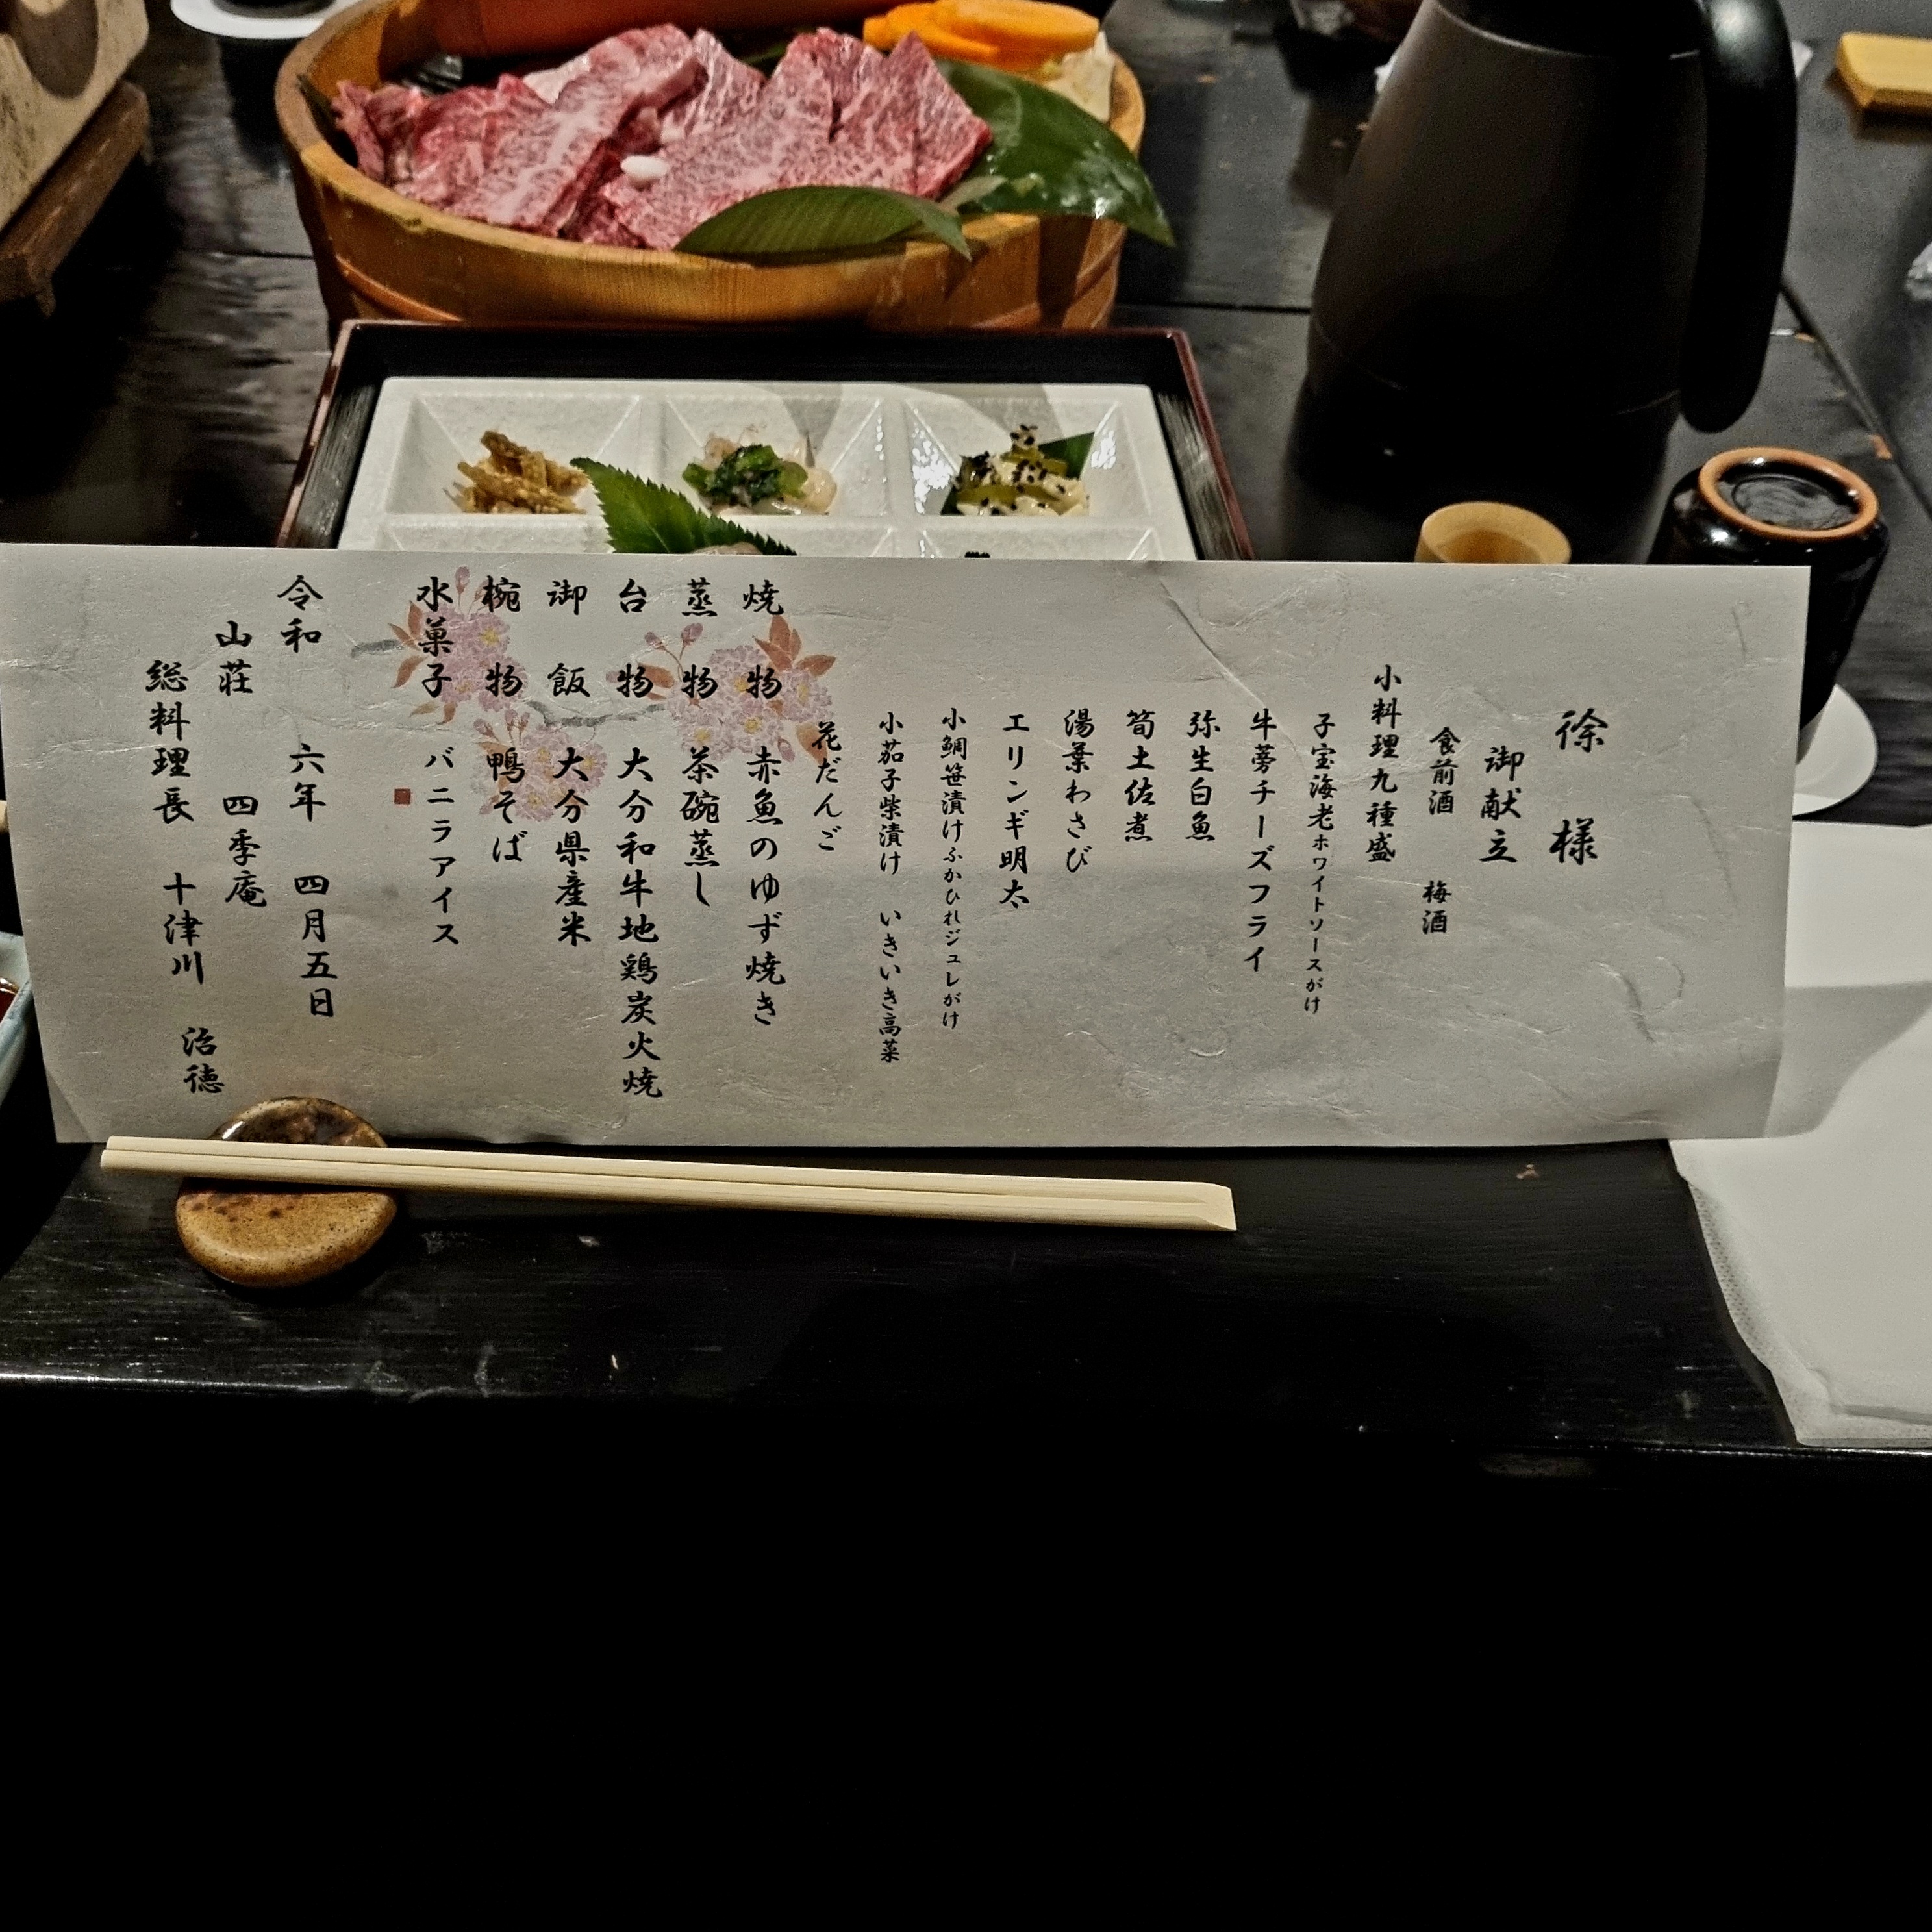 徐 様
御献立
食前酒 梅酒
小料理九種盛
子宝海老ホワイトソースがけ
牛蒡チーズフライ
弥生白魚
筍土佐煮
湯葉わさび
エリンギ明太
小鯛笹漬けふかひれジュレがけ
小茄子柴漬け いきいき高菜
花だんご
焼 物 赤魚のゆず焼き
蒸 物 茶碗蒸し
台 物 大分和牛地鶏炭火焼
御 飯 大分県産米
椀 物 鴨そば
水菓子 バニラアイス
令和 六年 四月五日
山荘 四季庵
総料理長 十津川 治徳